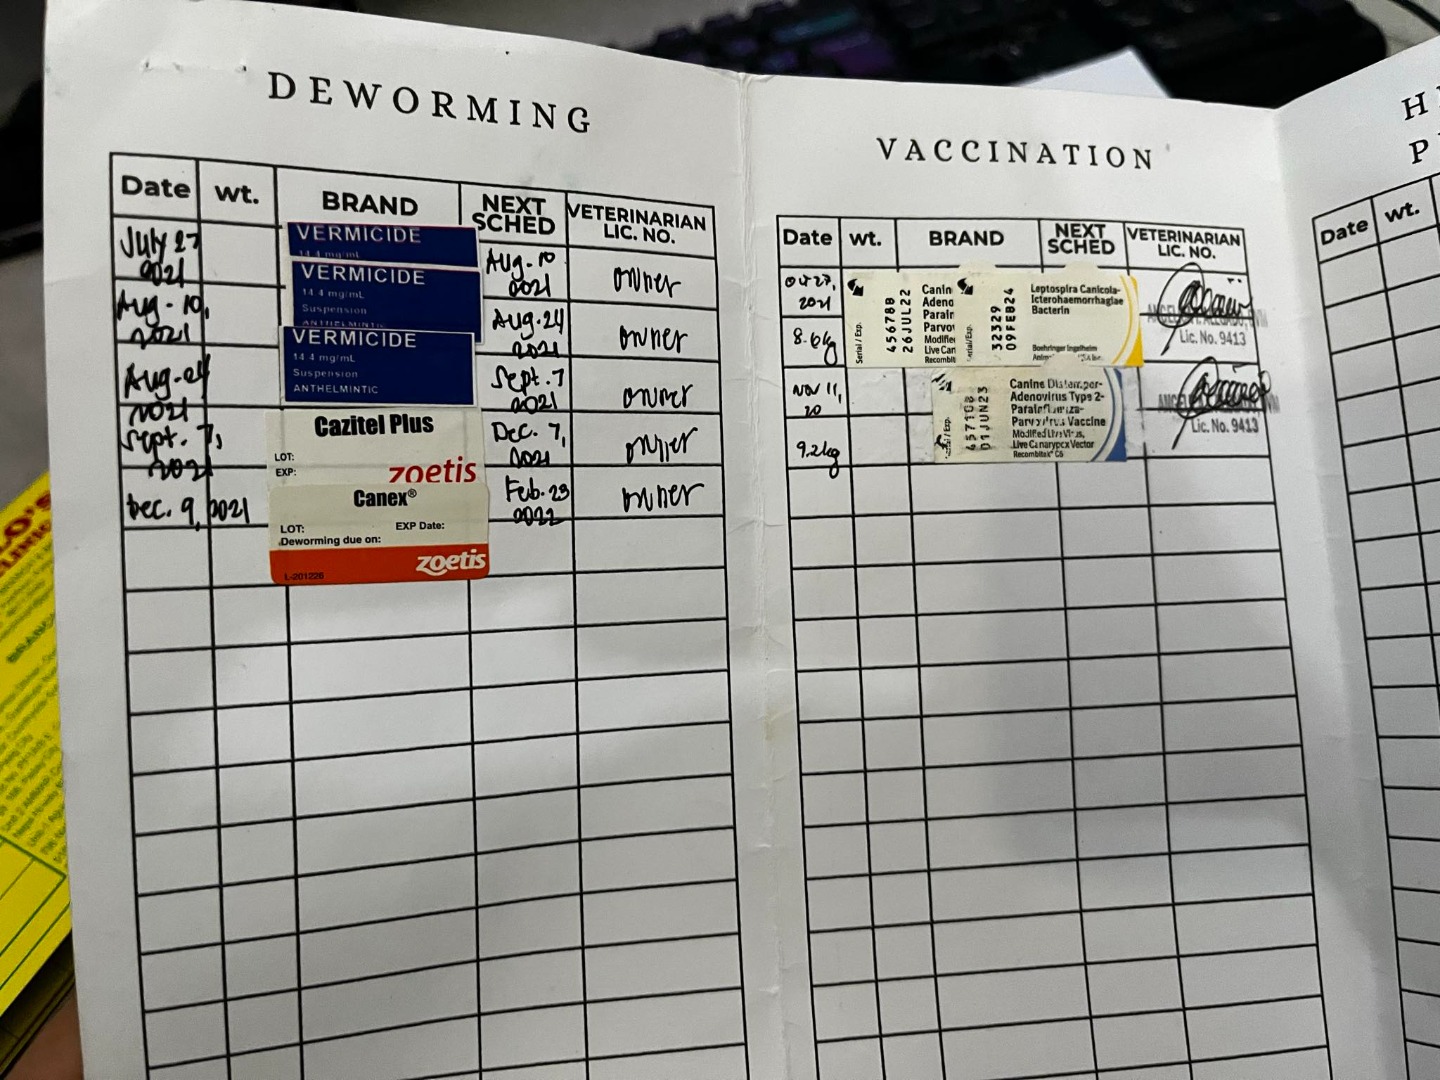 DEWORMING
Date wt. BRAND NEXT SCHED VETERINARIAN LIC. NO.
July 27 2021 VERMICIDE Aug. 10 2021 owner
Aug. 10, 2021 VERMICIDE 14.4 mg/mL Suspension ANTHELMINTIC Aug. 24 2021 owner
Aug. 24 2021 VERMICIDE 14.4 mg/mL Suspension ANTHELMINTIC Sept. 7 2021 owner
Sept. 7, 2021 Cazitel Plus LOT: EXP: zoetis Dec. 7, 2021 owner
Dec. 9, 2021 Canex® LOT: EXP Date: Deworming due on: zoetis L-201226 Feb. 23 2022 owner
VACCINATION
Date wt. BRAND NEXT SCHED VETERINARIAN LIC. NO.
Oct 27, 2021
8.6kg
Serial / Exp.
45678B
26JUL22
Canin
Adeno
Parain
Parvo
Modifie
Live Can
Recombit
32329
09FEB24
Leptospira Canicola-
Icterohaemorrhagiae
Bacterin
Boehringer Ingelheim
Lic. No. 9413
Nov 11,
20
9.2kg
01JUN23
Canine Distemper-
Adenovirus Type 2-
Parainfluenza-
Parvovirus Vaccine
Modified Live Virus,
Live Canarypox Vector
Recombitek® C6
Lic. No. 9413
H
P
Date wt.